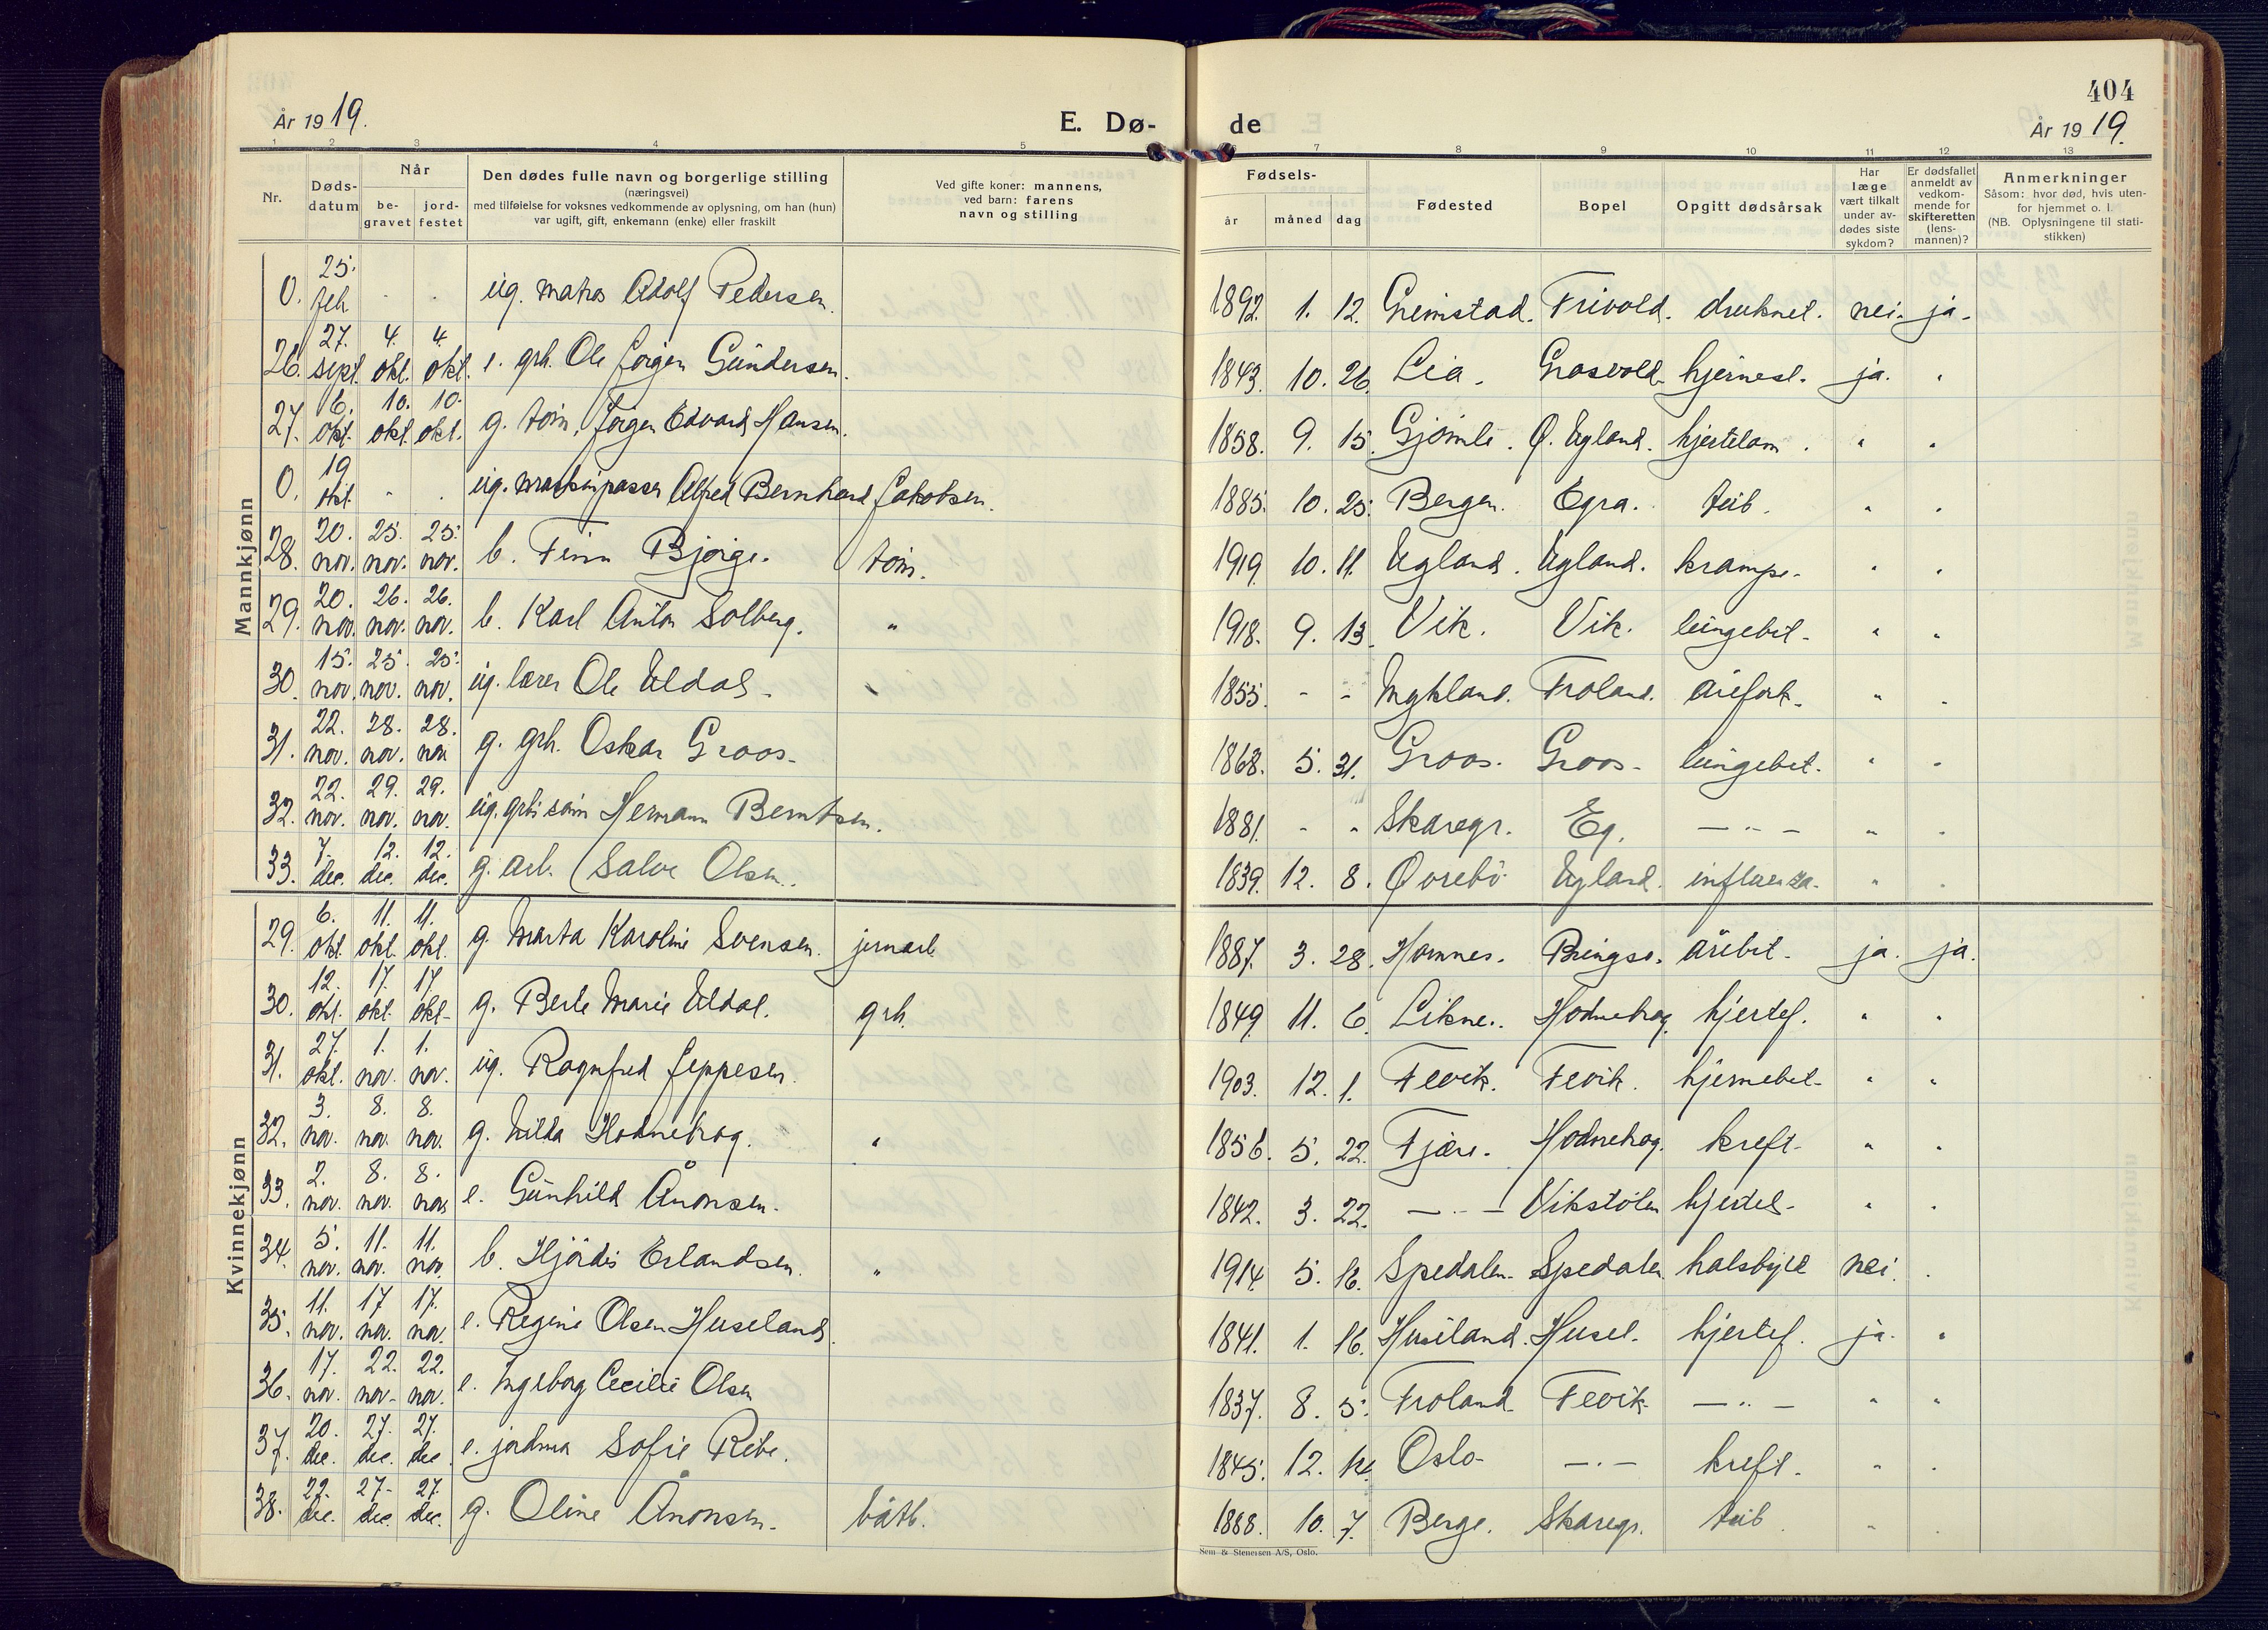 År 1919.
E. Dø-
de
404
År 1919.
1 2 3 4 5
7 8 9 10 11 12 13
Nr.
Døds-
datum
Når
be-
gravet
jord-
festet
Den dødes fulle navn og borgerlige stilling
(næringsvei)
med tilføielse for voksnes vedkommende av oplysning, om han (hun)
var ugift, gift, enkemann (enke) eller fraskilt
Ved gifte koner: mannens,
ved barn: farens
navn og stilling
Fødsels-
år måned dag
Fødested
Bopel
Opgitt dødsårsak
Har
læge
vært tilkalt
under av-
dødes siste
sykdom?
Er dødsfallet
anmeldt av
vedkom-
mende for
skifteretten
(lens-
mannen)?
Anmerkninger
Såsom: hvor død, hvis uten-
for hjemmet o. l.
(NB. Oplysningene til stati-
stikken)
Mannkjønn
0. 25. feb - . ug. matros Adolf Pedersen. 1892. 1. 12. Grimstad. Frivold. druknet. nei. ja.
26. 27. sept. 4. okt. 4. okt. e. grb. Ole Jörgen Gundersen. 1843. 10. 26. Lia. Grosvold. hjernesl. ja. "
27. 6. okt. 10. okt. 10. okt. g. töm. Jörgen Edvard Hansen. 1858. 9. 15. Gjömle. Ø. Ugland. hjertelam. " "
0. 19 okt. - . ug. maskinpasser Alfred Bernhard Jakobsen. 1885. 10. 25. Bergen. Egra. tub. " "
28. 20. nov. 25. nov. 25. nov. b. Finn Bjorge. töm. 1919. 10. 11. Ugland. Ugland. krampe. " "
29. 20. nov. 26. nov. 26. nov. b. Karl Anton Solberg. " 1918. 9. 13. Vik. Vik. lungebet. " "
30. 15. nov. 25. nov. 25. nov. ug. lærer Ole Uldal. 1855. - - Mykland. Froland. årefork. " "
31. 22. nov. 28. nov. 28. nov g. grb. Oskar Groos. 1868. 5. 31. Groos. Groos. lungebet. " "
32. 22. nov. 29. nov. 29. nov. ug. grb. sönn Hermann Berntsen. 1881. - " Skaregr. Eg. — " — " "
33. 7. dec. 12. dec. 12. dec. g. arb. Salve Olsen. 1839. 12. 8. Øvrebö Ugland. influenza. " "
Kvinnekjønn
29. 6. okt 11. okt 11. okt. g. Marta Karoline Svensen. jernarb. 1887. 3. 28. Hamnes. Bringsv. årebet. ja. ja.
30. 12. okt. 17. okt. 17. okt. g. Berte Marie Uldal. grb. 1849. 11. 6. Likne. Hodnebrog. hjertef. " "
31. 27. okt. 1. nov. 1. nov. ug. Ragnfred Jeppesen. 1903. 12. 1. Fevik. Fevik. hjernebet. " "
32. 3. nov. 8. nov. 8. nov. g. Hilda Hodnebrog. " 1856. 5. 22. Fjære. Hodnebrog. kreft. " "
33. 2. nov. 8. nov. 8. nov e. Gunhild Ånonsen. 1842. 3. 22. — " — Vikstölen hjertel. " "
34. 5. nov. 11. nov. 11. nov. b. Hjördis Erlandsen. " 1914. 5. 16. Spedalen. Spedalen. halsbyld nei. .
35. 11. nov. 17 nov. 17. nov. e. Regine Olsen Huseland. 1841. 1. 16. Huseland. Husel. hjertef. ja. "
36. 17. nov. 22. nov. 22. nov. e. Ingeborg Cecilie Olsen 1837. 8. 5. Froland Fevik — " — " "
37. 20. dec. 27. dec. 27. dec. e. jordmor Sofie Ribe. 1845. 12. Oslo. — " — kreft. " .
38. 22. dec. 27. dec. 27. dec. g. Oline Ånonsen. båtb. 1888. 10. 7. Berge. Skaregr. tub. " .
Sem & Stenersen A/S, Oslo.